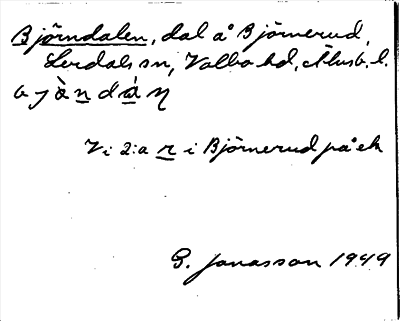 Björndalen, dal å Björnerud,
Lerdals sn, Valbo hd, Älvsb. l.
bjò̀n̲dá̲n
Vi 2:a r̲ i Björnerud på ek
G. Jonasson 1949